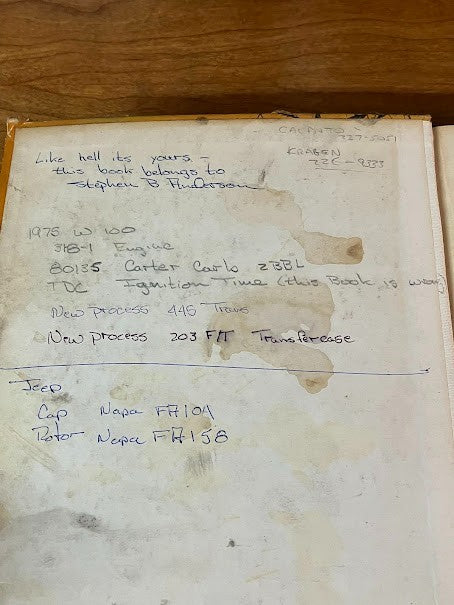 KRAGEN
226-9333
Like hell its yours –
this book belongs to
Stephen B Anderson
1975 W 100
318-1 Engine
80135 Carter Carb 2BBL
TDC Ignition Time (this Book is wrong)
New Process 445 Trans
New Process 203 F/T Transfercase
Jeep
Cap Napa FA104
Rotor Napa FA158